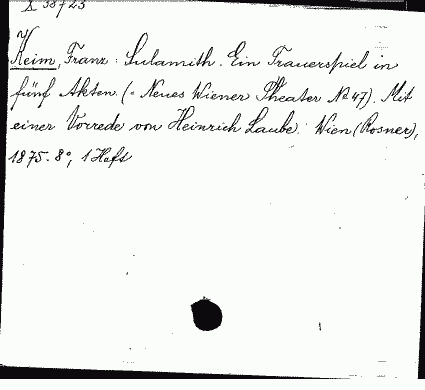 38723
Keim, Franz: Sulamith. Ein Trauerspiel in
fünf Akten. (= Neues Wiener Theater No 47). Mit
einer Vorrede von Heinrich Laube. Wien (Rosner),
1875. 8°, 1 Heft